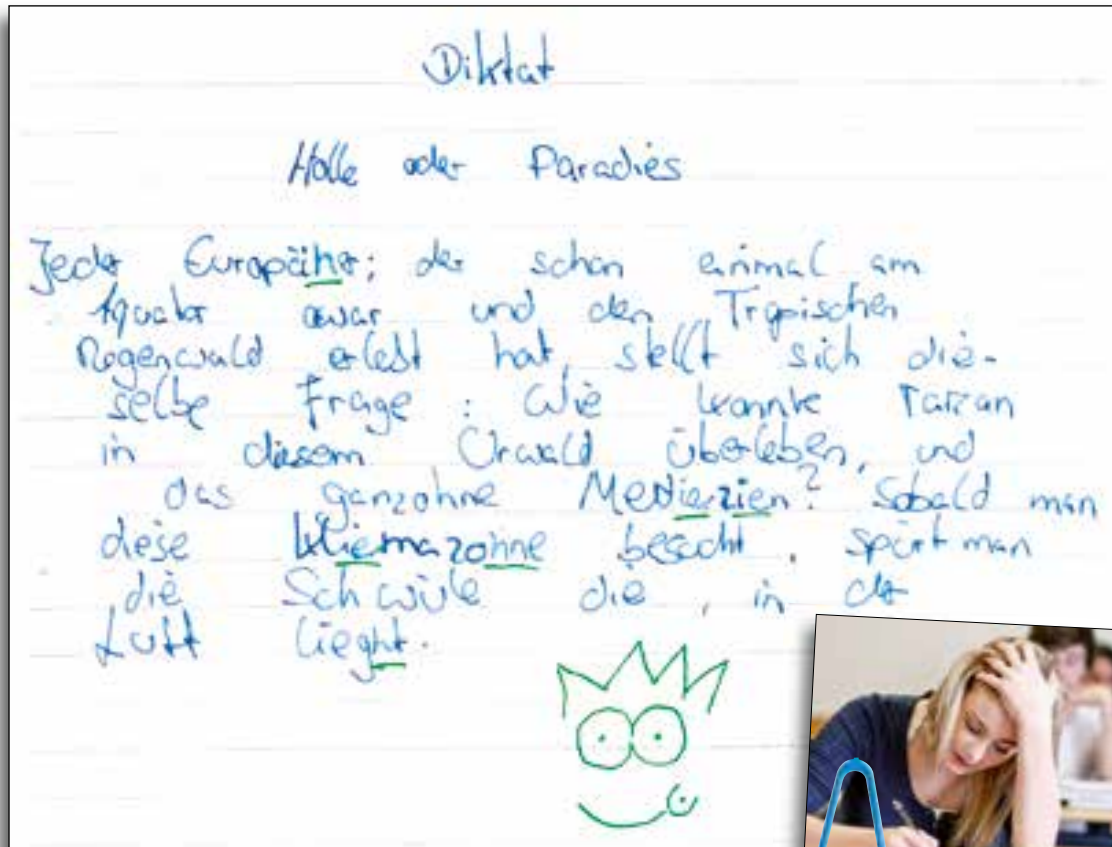 Diktat
Holle oder Paradies
Jeder Europäiher; der schon einmal am
Aquator war und den Tropischen
Regenwald erlebt hat, stellt sich die-
selbe Frage: Wie konnte Tarzan
in diesem Urwald überleben, und
das ganzohne Medierzien? Sobald man
diese Kliemazohne besucht, spürt man
die Schwüle die, in der
Luft lieght.